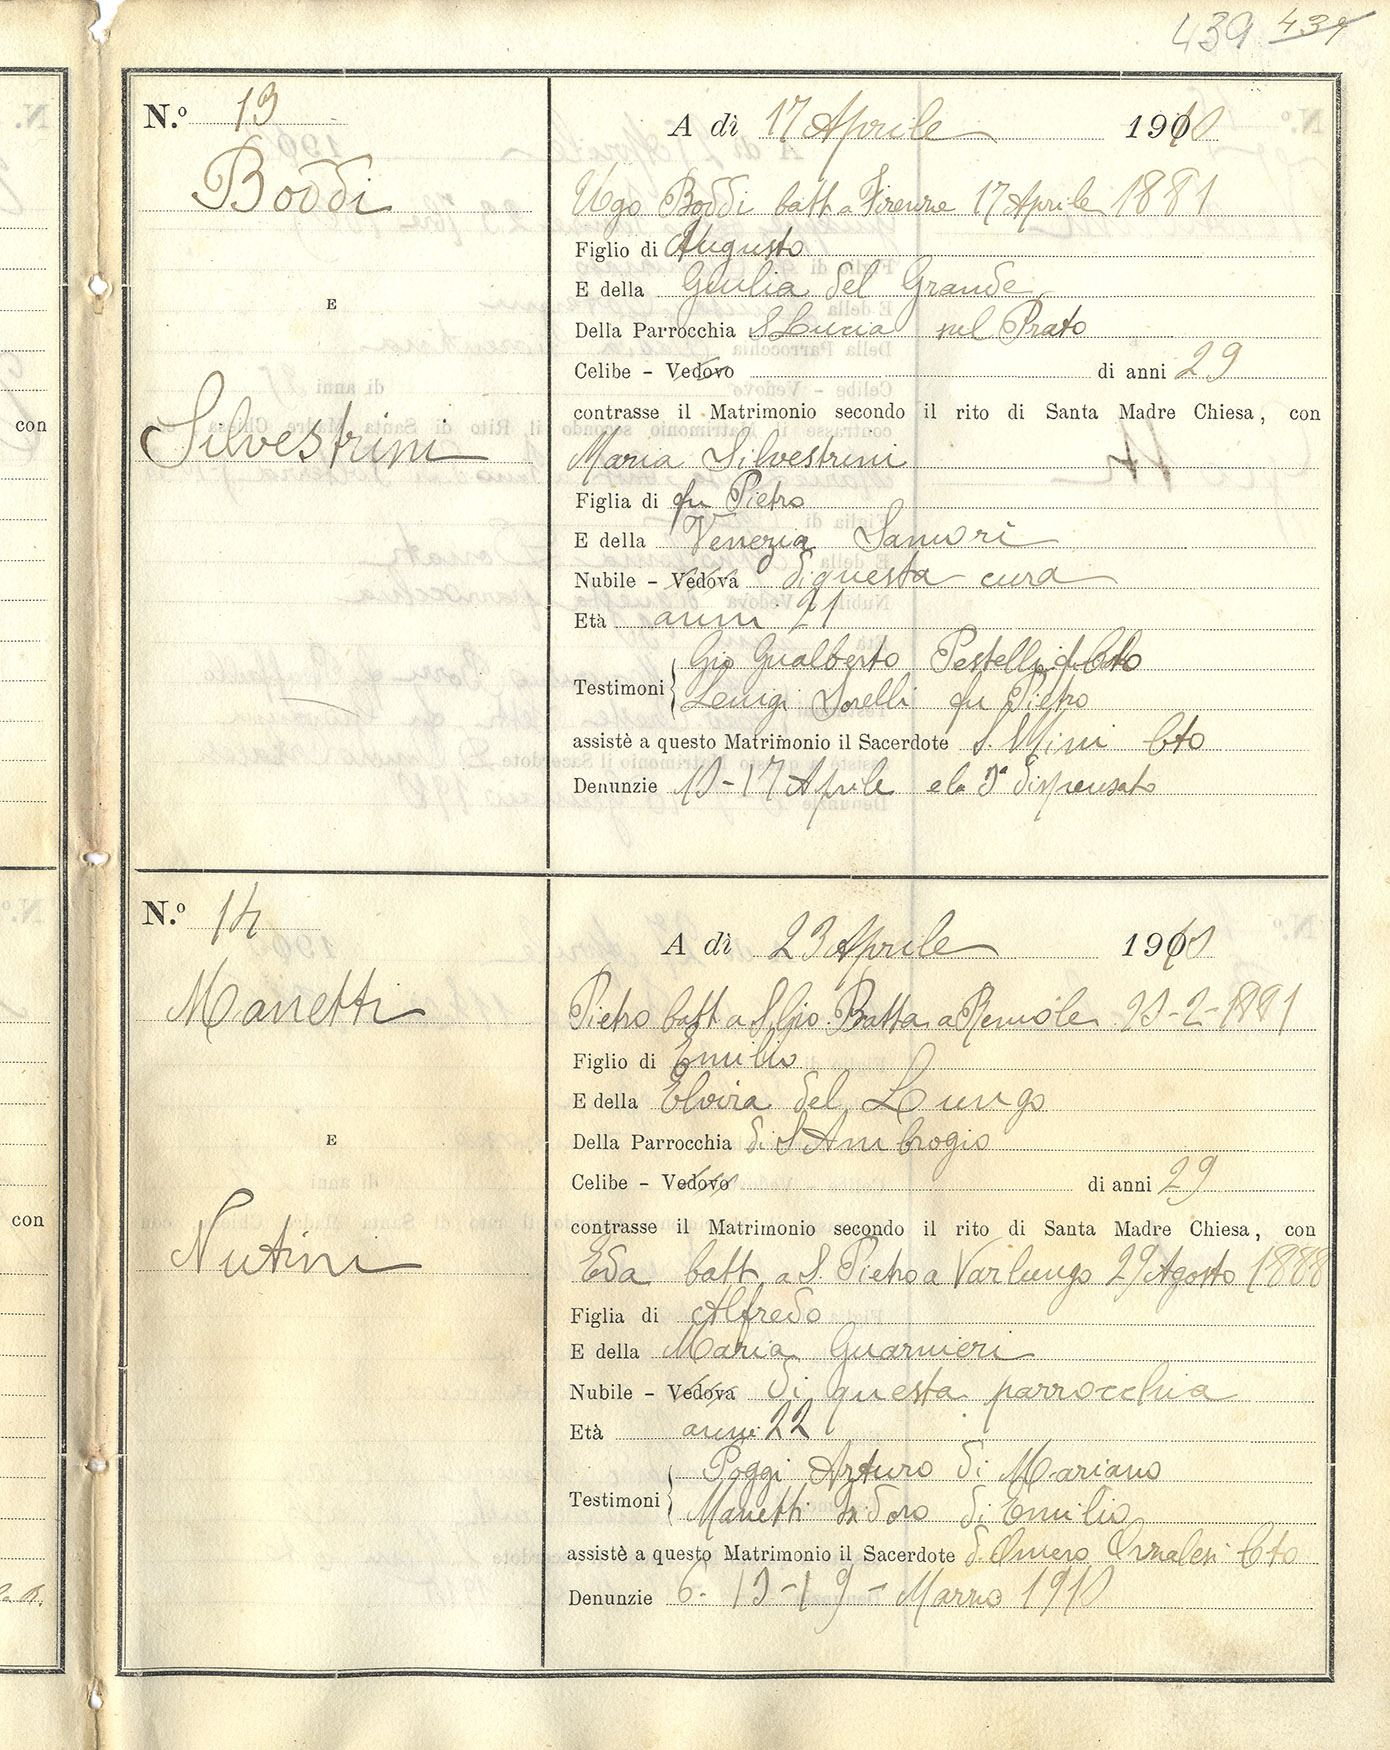 439 439
N.º 13
A dì 17 Aprile 1910
Boddi
Ugo Boddi batt a Firenze 17 Aprile 1881
Figlio di Augusto
E della Giulia del Grande
E
Della Parrocchia S Lucia sul Prato
Celibe - Vedovo di anni 29
contrasse il Matrimonio secondo il rito di Santa Madre Chiesa, con
con
Silvestrini
Maria Silvestrini
Figlia di fu Pietro
E della Venezia Samori
Nubile - Vedova di questa cura
Età anni 21
Testimoni Gio Gualberto Pestelli
Luigi Sorelli fu Pietro
assistè a questo Matrimonio il Sacerdote S. Mini Cto
Denunzie 10-17 Aprile e la 3ª dispensato
N.º 14
A dì 23 Aprile 1910
Manetti
Pietro batt a S Gio Batta a Remole -2-1881
Figlio di Emilio
E della Elvira del Lungo
E
Della Parrocchia di S Ambrogio
Celibe - Vedovo di anni 29
con
contrasse il Matrimonio secondo il rito di Santa Madre Chiesa, con
Nutini
Eda batt a S. Pietro a Varlungo 29 Agosto 1888
Figlia di Alfredo
E della Maria Guarnieri
Nubile - Vedova di questa parrocchia
Età anni 22
Testimoni Poggi Arturo di Mariano
Manetti di Emilio
assistè a questo Matrimonio il Sacerdote d. Omero Cto
Denunzie 6- 13-19 - Marzo 1910